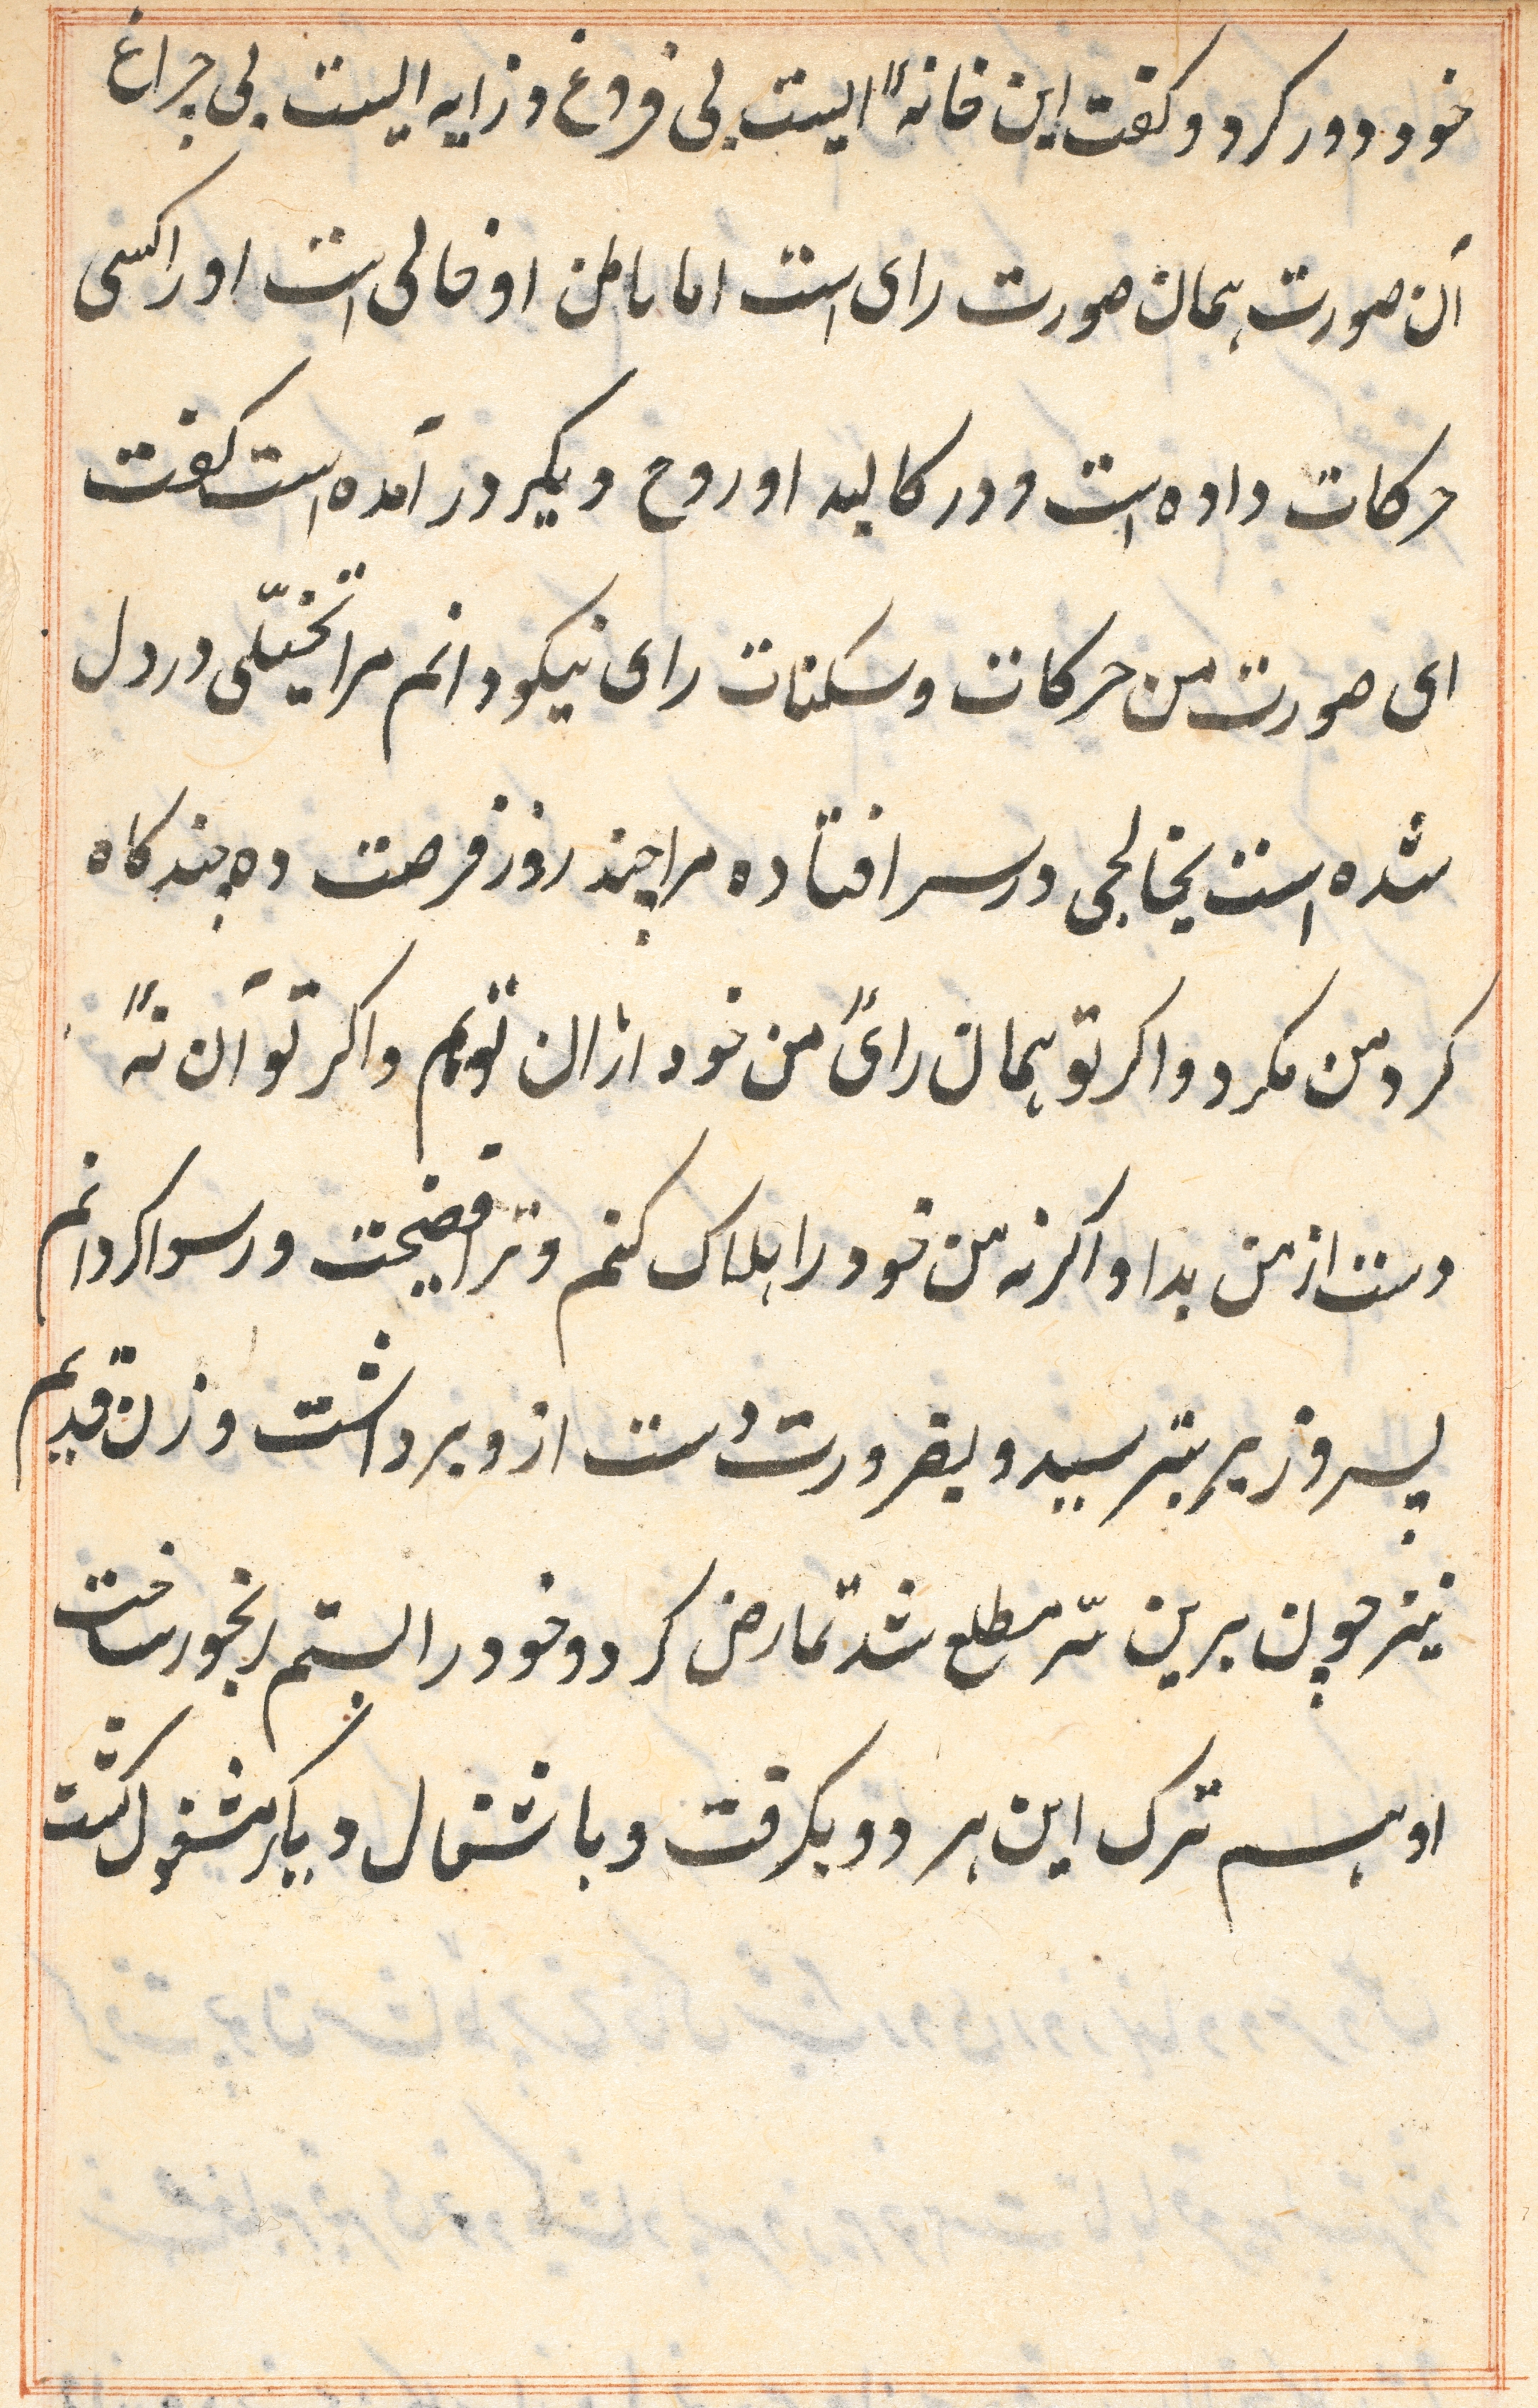 خود دور کرد و کفت این خانهٔ ایست بی فروغ و زایه ایست بی چراغ
آن صورت همان صورت رای است اما باطن او خالی است او را کسی
حرکات داده است و در کالبد او روح دیکر در آمده است کفت
ای صورت من حرکات و سکنات رای نیکو دانم مرا تخیّلی در دل
شده است یخالجی در سر افتاده مرا چند روز فرصت ده چند کاه
کرد من مکرد و اکر تو همان رائ من خود ازان توئم و اکر تو آن نهٔ
دست از من بدا و اکر نه من خود را هلاک کنم و ترا فضیحت و رسوا کردانم
پسر وزیر بترسید و بضرورت دست ازو برداشت و زن قدیم
نیز چون برین سّر مطلع شد تمارض کرد و خود را بستم رنجور ساخت
او هم ترک این هر دو بکرفت و باشغال دیکر مشغول کشت